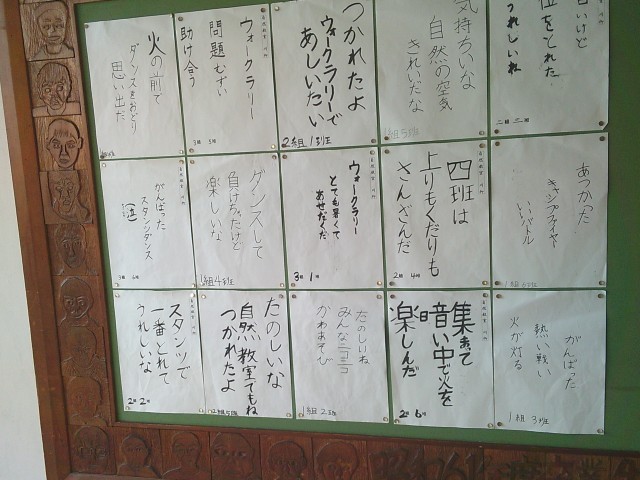 いけど
位をとれた
うれしいね
二組 三班
気持ちいな
自然の空気
きれいだな
1組5班
つかれたよ
ウォークラリーで
あしいたい
2組 1班
ウォークラリー
問題むずい
助け合う
3組 5班
火の前で
ダンスをおどり
思い出だ
あつかった
キャンプファイヤー
いいバトル
1組6班
四班は
上りもくだりも
さんざんだ
2組 4班
ウォークラリー
とても暑くて
あせだくだ
3組 1班
ダンスして
負けちゃたけど
楽しいな
1組4班
がんばった
スタンツダンス
がんばった
熱い戦い
火が灯る
1組3班
集まって
暗い中で火を
楽しんだ
2組 6班
たのしいね
みんなニコニコ
かわあそび
1組2班
たのしいな
自然教室でもね
つかれたよ
2組5班
スタンツで
一番とれて
うれしいな
2組 2班